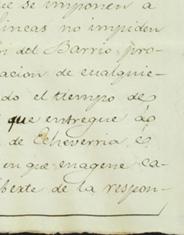 que se imponen a
lineas no impiden
del Barrio, pro-
acion de cualquie-
do el tiempo de
que entregue
de Echeverria, é
en que enagene ca-
de la respon-